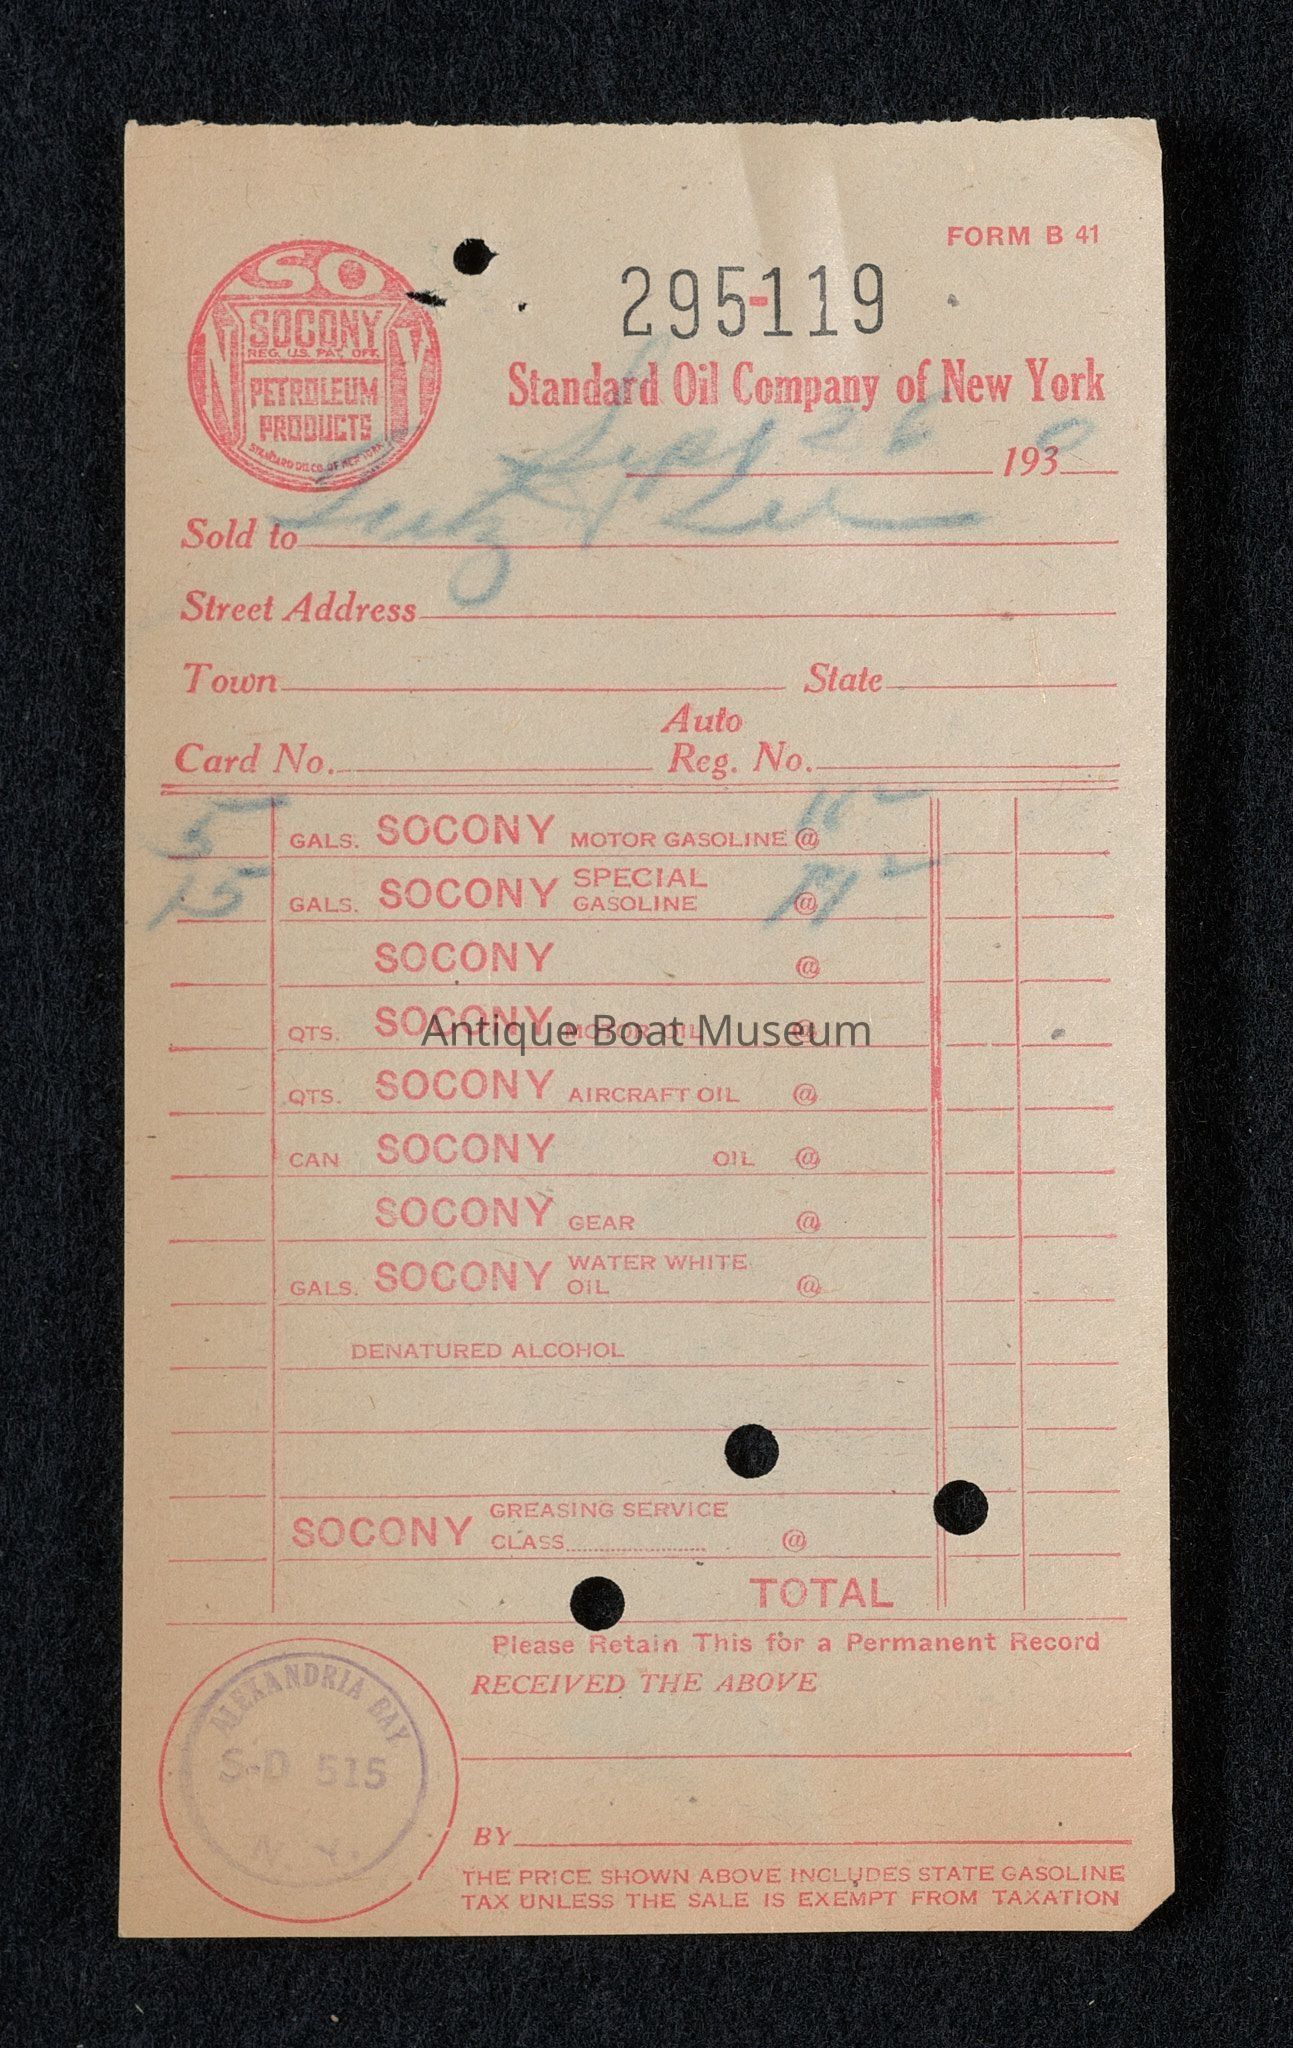 FORM B 41
SO
SOCONY
REG. U.S. PAT. OFF.
PETROLEUM
PRODUCTS
STANDARD OIL CO. OF NEW YORK
295-119
Standard Oil Company of New York
Sept 26 1930
Sold to
Street Address
Town State
Auto
Card No. Reg. No.
5 GALS. SOCONY MOTOR GASOLINE @
15 GALS. SOCONY SPECIAL GASOLINE @
SOCONY @
QTS. SOCONY MOTOR OIL @
Antique Boat Museum
QTS. SOCONY AIRCRAFT OIL @
CAN SOCONY OIL @
SOCONY GEAR @
GALS. SOCONY WATER WHITE OIL @
DENATURED ALCOHOL
SOCONY GREASING SERVICE
CLASS @
TOTAL
Please Retain This for a Permanent Record
RECEIVED THE ABOVE
ALEXANDRIA BAY
S-D 515
N. Y.
BY
THE PRICE SHOWN ABOVE INCLUDES STATE GASOLINE
TAX UNLESS THE SALE IS EXEMPT FROM TAXATION